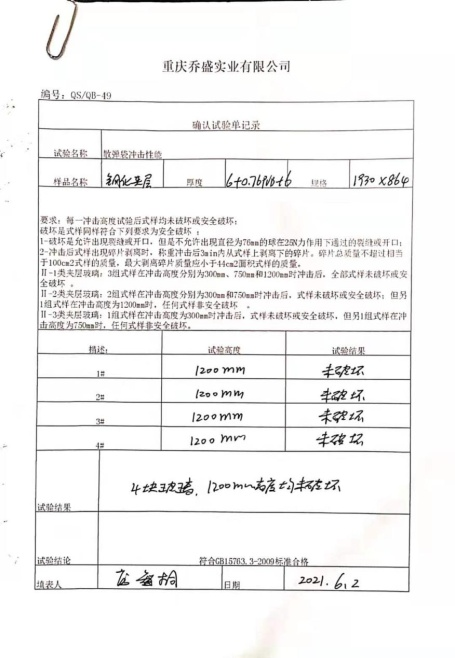 重庆乔盛实业有限公司
编号：QS/QB-49
确认试验单记录
试验名称 散弹袋冲击性能
样品名称 钢化夹层 厚度 6+0.76PVB+6 规格 1930×864
要求：每一冲击高度试验后式样均未破坏或安全破坏：
破坏是式样同样符合下列要求为安全破坏：
1-破坏是允许出现裂缝或开口，但是不允许出现直径为76mm的球在25N力作用下通过的裂缝或开口；
2-冲击后式样出现碎片剥离时，称重冲击后3min内从式样上剥离下的碎片。碎片总质量不超过相当
于100cm2式样的质量，最大剥离碎片质量应小于44cm2面积式样的质量。
Ⅱ-1类夹层玻璃：3组式样在冲击高度分别为300mm、750mm和1200mm时冲击后，全部式样未破坏或安
全破坏 。
Ⅱ-2类夹层玻璃：2组式样在冲击高度分别为300mm和750mm时冲击后，式样未破坏或安全破坏；但另
1组式样在冲击高度为1200mm时，任何式样非安全破坏 。
Ⅱ-3类夹层玻璃：1组式样在冲击高度为300mm时冲击后，式样未破坏或安全破坏，但另1组式样在冲
击高度为750mm时，任何式样非安全破坏。
描述： 试验高度 试验结果
1# 1200mm 未破坏
2# 1200mm 未破坏
3# 1200mm 未破坏
4# 1200mm 未破坏
4块玻璃，1200mm高度均未破坏
试验结果
试验结论 符合GB15763.3-2009标准合格
填表人 日期 2021.6.2